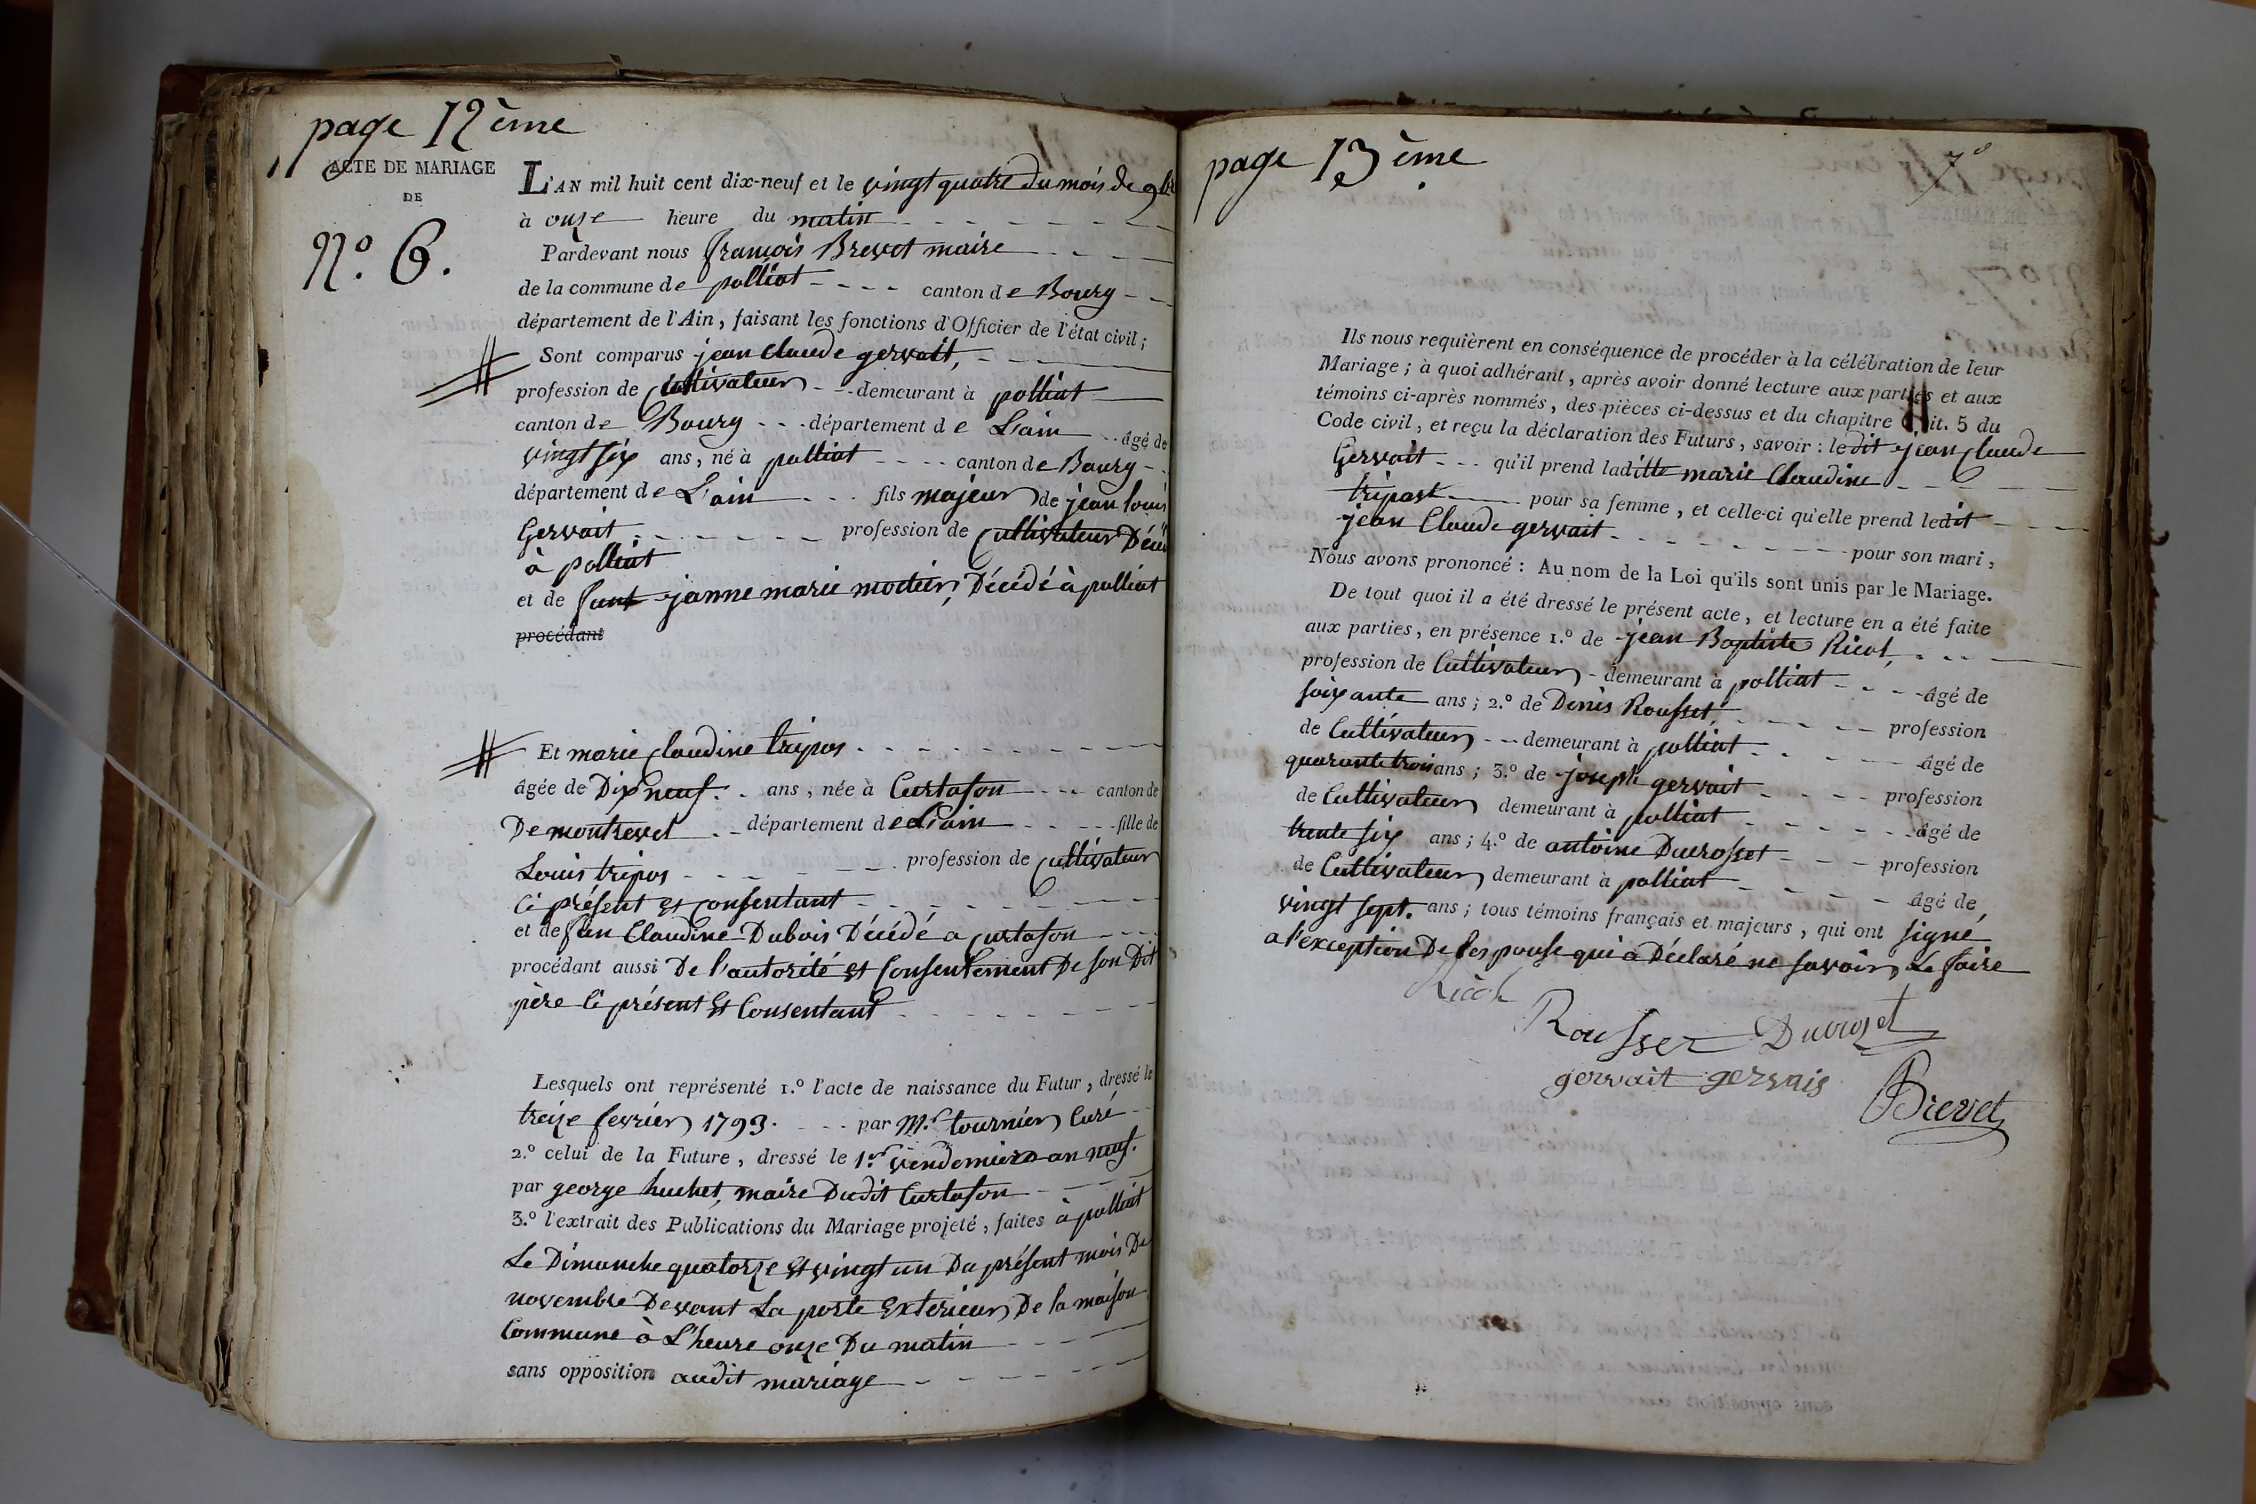 page 12ème
ACTE DE MARIAGE
DE
N.º 6.
L'AN mil huit cent dix-neuf et le vingt quatre du mois de 9bre
à onze heure du matin
Pardevant nous françois Brevet maire
de la commune de polliat canton de Bourg
département de l'Ain, faisant les fonctions d'Officier de l'état civil;
Sont comparus jean Claude gervait,
profession de Cultivateur demeurant à polliat
canton de Bourg département de L'ain âgé de
vingt six ans, né à polliat canton de Bourg
département de L'ain fils majeur de jean louis
Gervait profession de Cultivateur Décédé
à polliat
et de feue janne marie Décédé à polliat
procédant
Et marie Claudine tripos
âgée de Dix neuf ans, née à Curtafon canton de
De montrevel département de L'ain fille de
Louis tripos profession de Cultivateur
Ci présent et Consentant
et de feu Claudine Dubois Décédé a Curtafon
procédant aussi De l'autorité et Consentement De son Dit
père Ci présent Et Consentant
Lesquels ont représenté 1.º l'acte de naissance du Futur, dressé le
treize fevrier 1793. par Mr. tournier Curé
2.º celui de la Future, dressé le 1er vendemiere an neuf.
par george huchet, maire Dudit Curtafon
3.º l'extrait des Publications du Mariage projeté, faites à polliat
Le Dimanche quatorze et vingt un Du présent mois De
novembre Devant La porte Exterieur De la maison
Commune à L'heure onze Du matin
sans opposition audit mariage
page 13ème
7º
Ils nous requièrent en conséquence de procéder à la célébration de leur
Mariage; à quoi adhérant, après avoir donné lecture aux parties et aux
témoins ci-après nommés, des pièces ci-dessus et du chapitre tit. 5 du
Code civil, et reçu la déclaration des Futurs, savoir: ledit jean Claude
Gervait qu'il prend laditte marie Claudine
tripost pour sa femme, et celle-ci qu'elle prend ledit
jean Claude gervait pour son mari,
Nous avons prononcé: Au nom de la Loi qu'ils sont unis par le Mariage.
De tout quoi il a été dressé le présent acte, et lecture en a été faite
aux parties, en présence 1.º de jean Baptiste Ricol,
profession de Cultivateur demeurant à polliat âgé de
soixante ans; 2.º de Denis Rousset, profession
de Cultivateur demeurant à polliat âgé de
quarante trois ans; 3.º de joseph gervait profession
de Cultivateur demeurant à polliat âgé de
trente six ans; 4.º de antoine Ducrosset profession
de Cultivateur demeurant à polliat âgé de
vingt sept. ans; tous témoins français et majeurs, qui ont signé
a l'exception De l'espouse qui a Déclaré ne savoir Le faire
Ricol
Rousset Ducroset
gervait gervais
Brevet